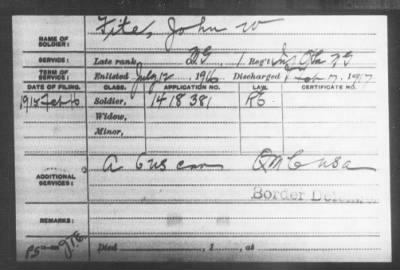 NAME OF SOLDIER: Fite, John W
SERVICE: Late rank, NG 1 Reg't Inf Okla NG
TERM OF SERVICE: Enlisted July 12, 1916 Discharged Feb 17, 1917
DATE OF FILING. CLASS. APPLICATION NO. LAW. CERTIFICATE NO.
Soldier, 1418381
Widow,
Minor,
ADDITIONAL SERVICES: QMC USA
Border
REMARKS:
Died , 1 , at